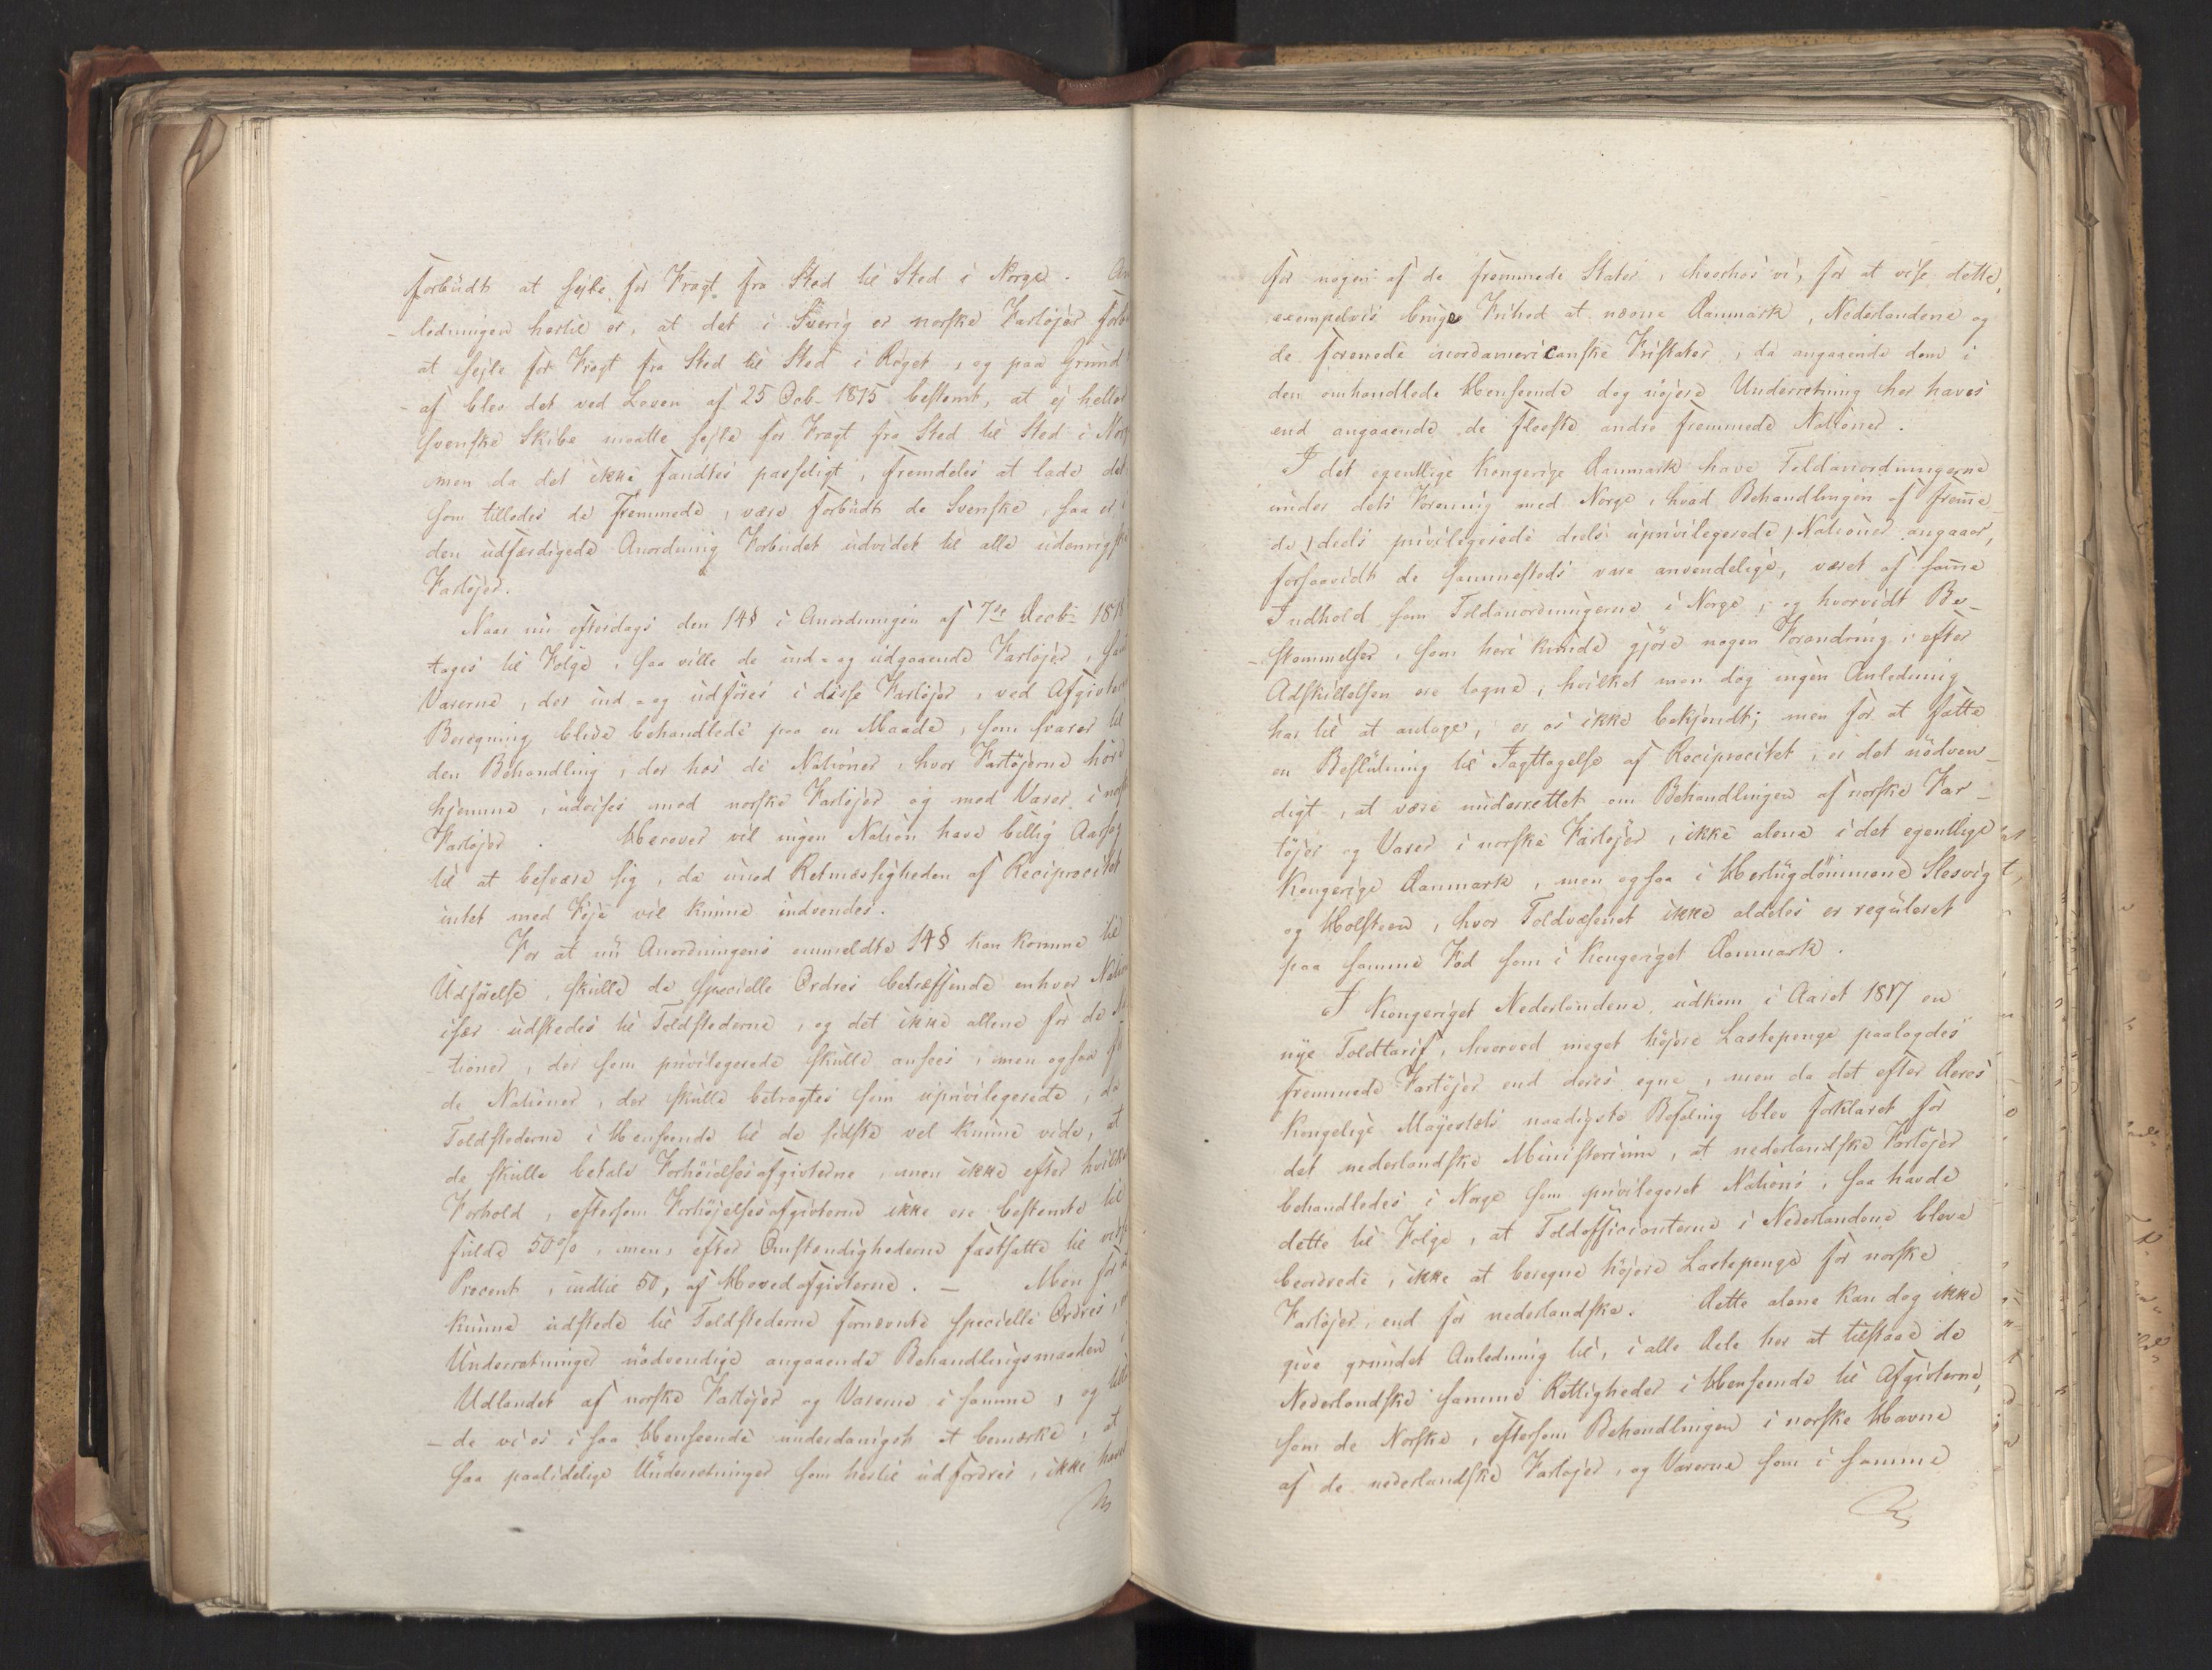 forbudt at sejle for Fragt fra Sted til Sted i Norge. An
-ledningen hertil er, at det i Sverig er norske Fartøjer forb
at sejle for Fragt fra Sted til Sted i Riget, og paa Grund
-af blev det ved Loven af 25 Octb 1815 bestemt, at ej heller
Svenske Skibe maatte sejle for Fragt fra Sted til Sted i Norg
men da det ikke fandtes passeligt, fremdeles at lade det
som tillodes de Fremmede, være forbudt de Svenske, saa er i
den udfærdigede Anordning Forbudet udvidet til alle udenrigske
Fartøjer.
Naar nu efterdags den 14§ i Anordningen af 7de Decbr 1818
tages til Følge, saa ville de ind- og udgaaende Fartøjer, samt
Varerne, der ind- og udføres i disse Fartøjer, ved Afgiftens
Beregning blive behandlede paa en Maade, som svarer til
den Behandling, der hos de Nationer, hvor Fartøjerne høre
hjemme, udvises mod norske Fartøjer og mod Varer i norske
Fartøjer. Herover vil ingen Nation have billig Aarsag
til at besvære sig, da imod Retmæssigheden af Reciprocitet
intet med Føje vil kunne indvendes.
For at nu Anordningens ommeldte 14§ kan komme til
Udførelse, skulle de specielle Ordres betræffende enhver Nation
især udstedes til Toldstederne, og det ikke allene for de Na
-tioner, der som privilegerede skulle ansees, men ogsaa for
de Nationer, der skulle betragtes som uprivilegerede, da
Toldstederne i Henseende til de sidste vel kunne vide, at
de skulle betale Forhøielsesafgivterne, men ikke efter hvilket
Forhold, eftersom Forhøjelsesafgivterne ikke ere bestemte til
fulde 50%, men, efter Omstændighederne fastsatte til visse
Procent, indtil 50, af Hovedafgivterne. – Men for at
kunne udstede til Toldstederne fornævnte specielle Ordres, er
Underretninger nødvendige angaaende Behandlingsmaaden i
Udlandet af norske Fartøjer og Varerne i samme, og tilla
-de vi os i saa Henseende underdanigst at bemærke, at
saa paalidelige Underretninger som hertil udfordres, ikke haves
for nogen af de fremmede Stater, hvorhos vi, for at vise dette,
exempelvis bruge Frihed at nævne Danmark, Nederlandene og
de forenede nordamericanske Fristater, da angaaende dem i
den omhandlede Henseende dog nøjere Underretning her haves
end angaaende de fleeste andre fremmede Nationer.
I det egentlige Kongerige Danmark have Toldanordningerne
under dets Forening med Norge, hvad Behandlingen af fremme-
de, deels privilegerede deels uprivilegerede, Nationer angaaer,
forsaavidt de sammesteds vare anvendelige, været af samme
Indhold som Toldanordningerne i Norge, og hvorvidt Be-
-stemmelser, som heri kunde gjøre nogen Forandring, efter
Adskillelsen ere tagne, hvilket man dog ingen Anledning
har til at antage, er os ikke bekjendt; men for at fatte
en Beslutning til Iagttagelse af Reciprocitet, er det nødven-
digt, at være underrettet om Behandlingen af norske Far-
tøjer og Varer i norske Fartøjer, ikke alene i det egentlige
Kongerige Danmark, men ogsaa i Hertugdømmene Slesvig
og Holsteen, hvor Toldvæsenet ikke aldeles er reguleret
paa samme Fod som i Kongeriget Danmark.
I Kongeriget Nederlandene udkom i Aaret 1817 en
nye Toldtarif, hvorved meget højere Lastepenge paalagdes
fremmede Fartøjer end deres egne, men da det efter Deres
Kongelige Mayestæts naadigste Befaling blev forklaret for
det nederlandske Ministerium, at nederlandske Fartøjer
behandledes i Norge som privilegeret Nations, saa havde
dette til Følge, at Toldofficianterne i Nederlandene bleve
beordrede, ikke at beregne højere Lastepenge for norske
Fartøjer, end for nederlandske. Dette alene kan dog ikke
give grundet Anledning til, i alle Dele her at tilstaae de
Nederlandske samme Rettigheder i Henseende til Afgivterne,
som de Norske, eftersom Behandlingen i norske Havne
af de nederlandske Fartøjer, og Varerne som i samme